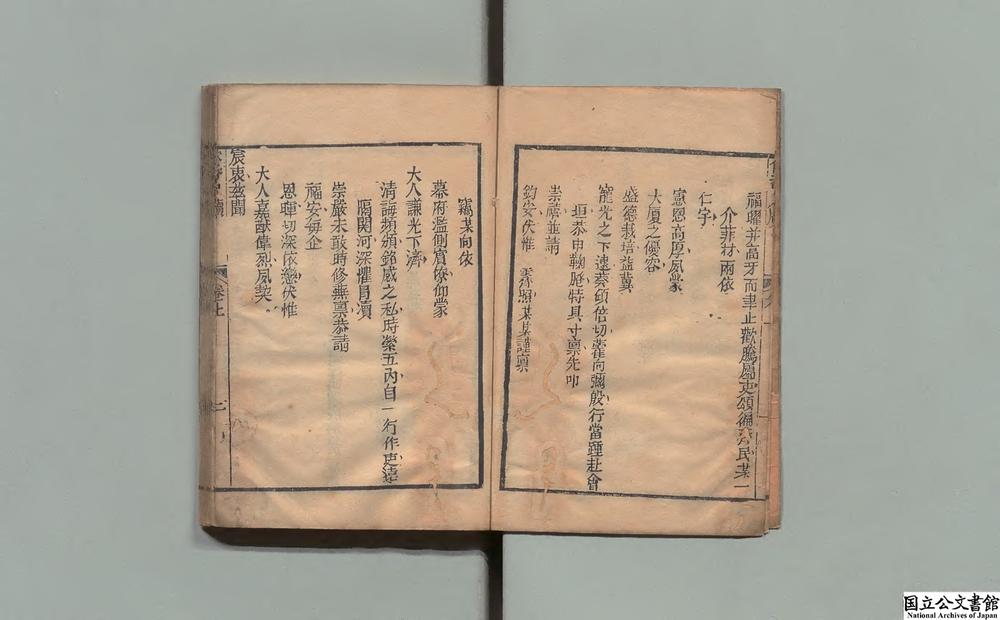 福曜並高牙而聿止歡騰屬吏頌徧黎民某一
介菲材兩依
仁宇
憲恩高厚夙蒙
大厦之優容
盛德栽培益冀
寵光之下逮葵傾倍切藿向彌殷行當踵赴會
垣恭申鞠跽特具寸禀先叩
崇禧並請
鈞安伏惟 霁照某某謹禀
竊某向依
幕府濫側賓僚仰蒙
大人謙光下濟
清誨頻頒銘感之私時縈五內自一行作吏遠
隔關河深懼冒瀆
崇嚴未敢時修蕪禀恭請
福安每企
恩暉切深依戀伏惟
大人嘉猷偉烈夙契
宸衷茲聞
卷上
国立公文書館
National Archives of Japan